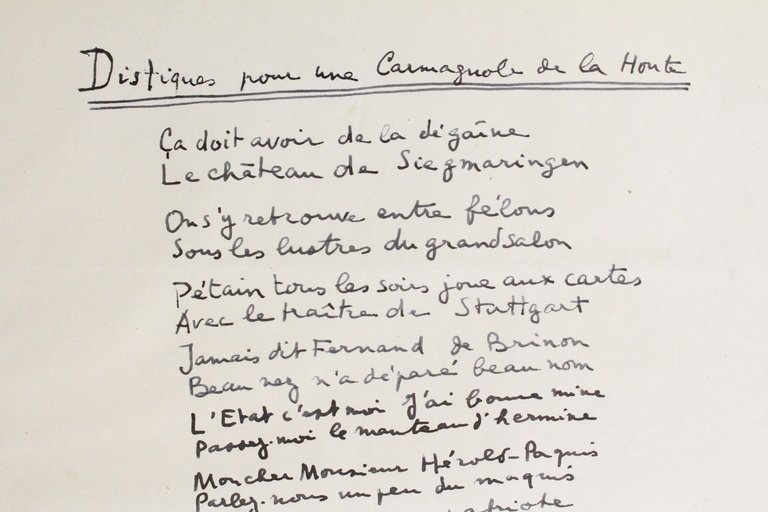 Distiques pour une Carmagnole de la Honte
Ça doit avoir de la dégaîne
Le château de Siegmaringen
On s'y retrouve entre félons
Sous les lustres du grand salon
Pétain tous les soirs joue aux cartes
Avec le traître de Stuttgart
Jamais dit Fernand de Brinon
Beau nez n'a déparé beau nom
L'Etat c'est moi J'ai bonne mine
Passez-moi le manteau d'hermine
Mon cher Monsieur Hérold-Paquis
Parlez-nous un peu du maquis